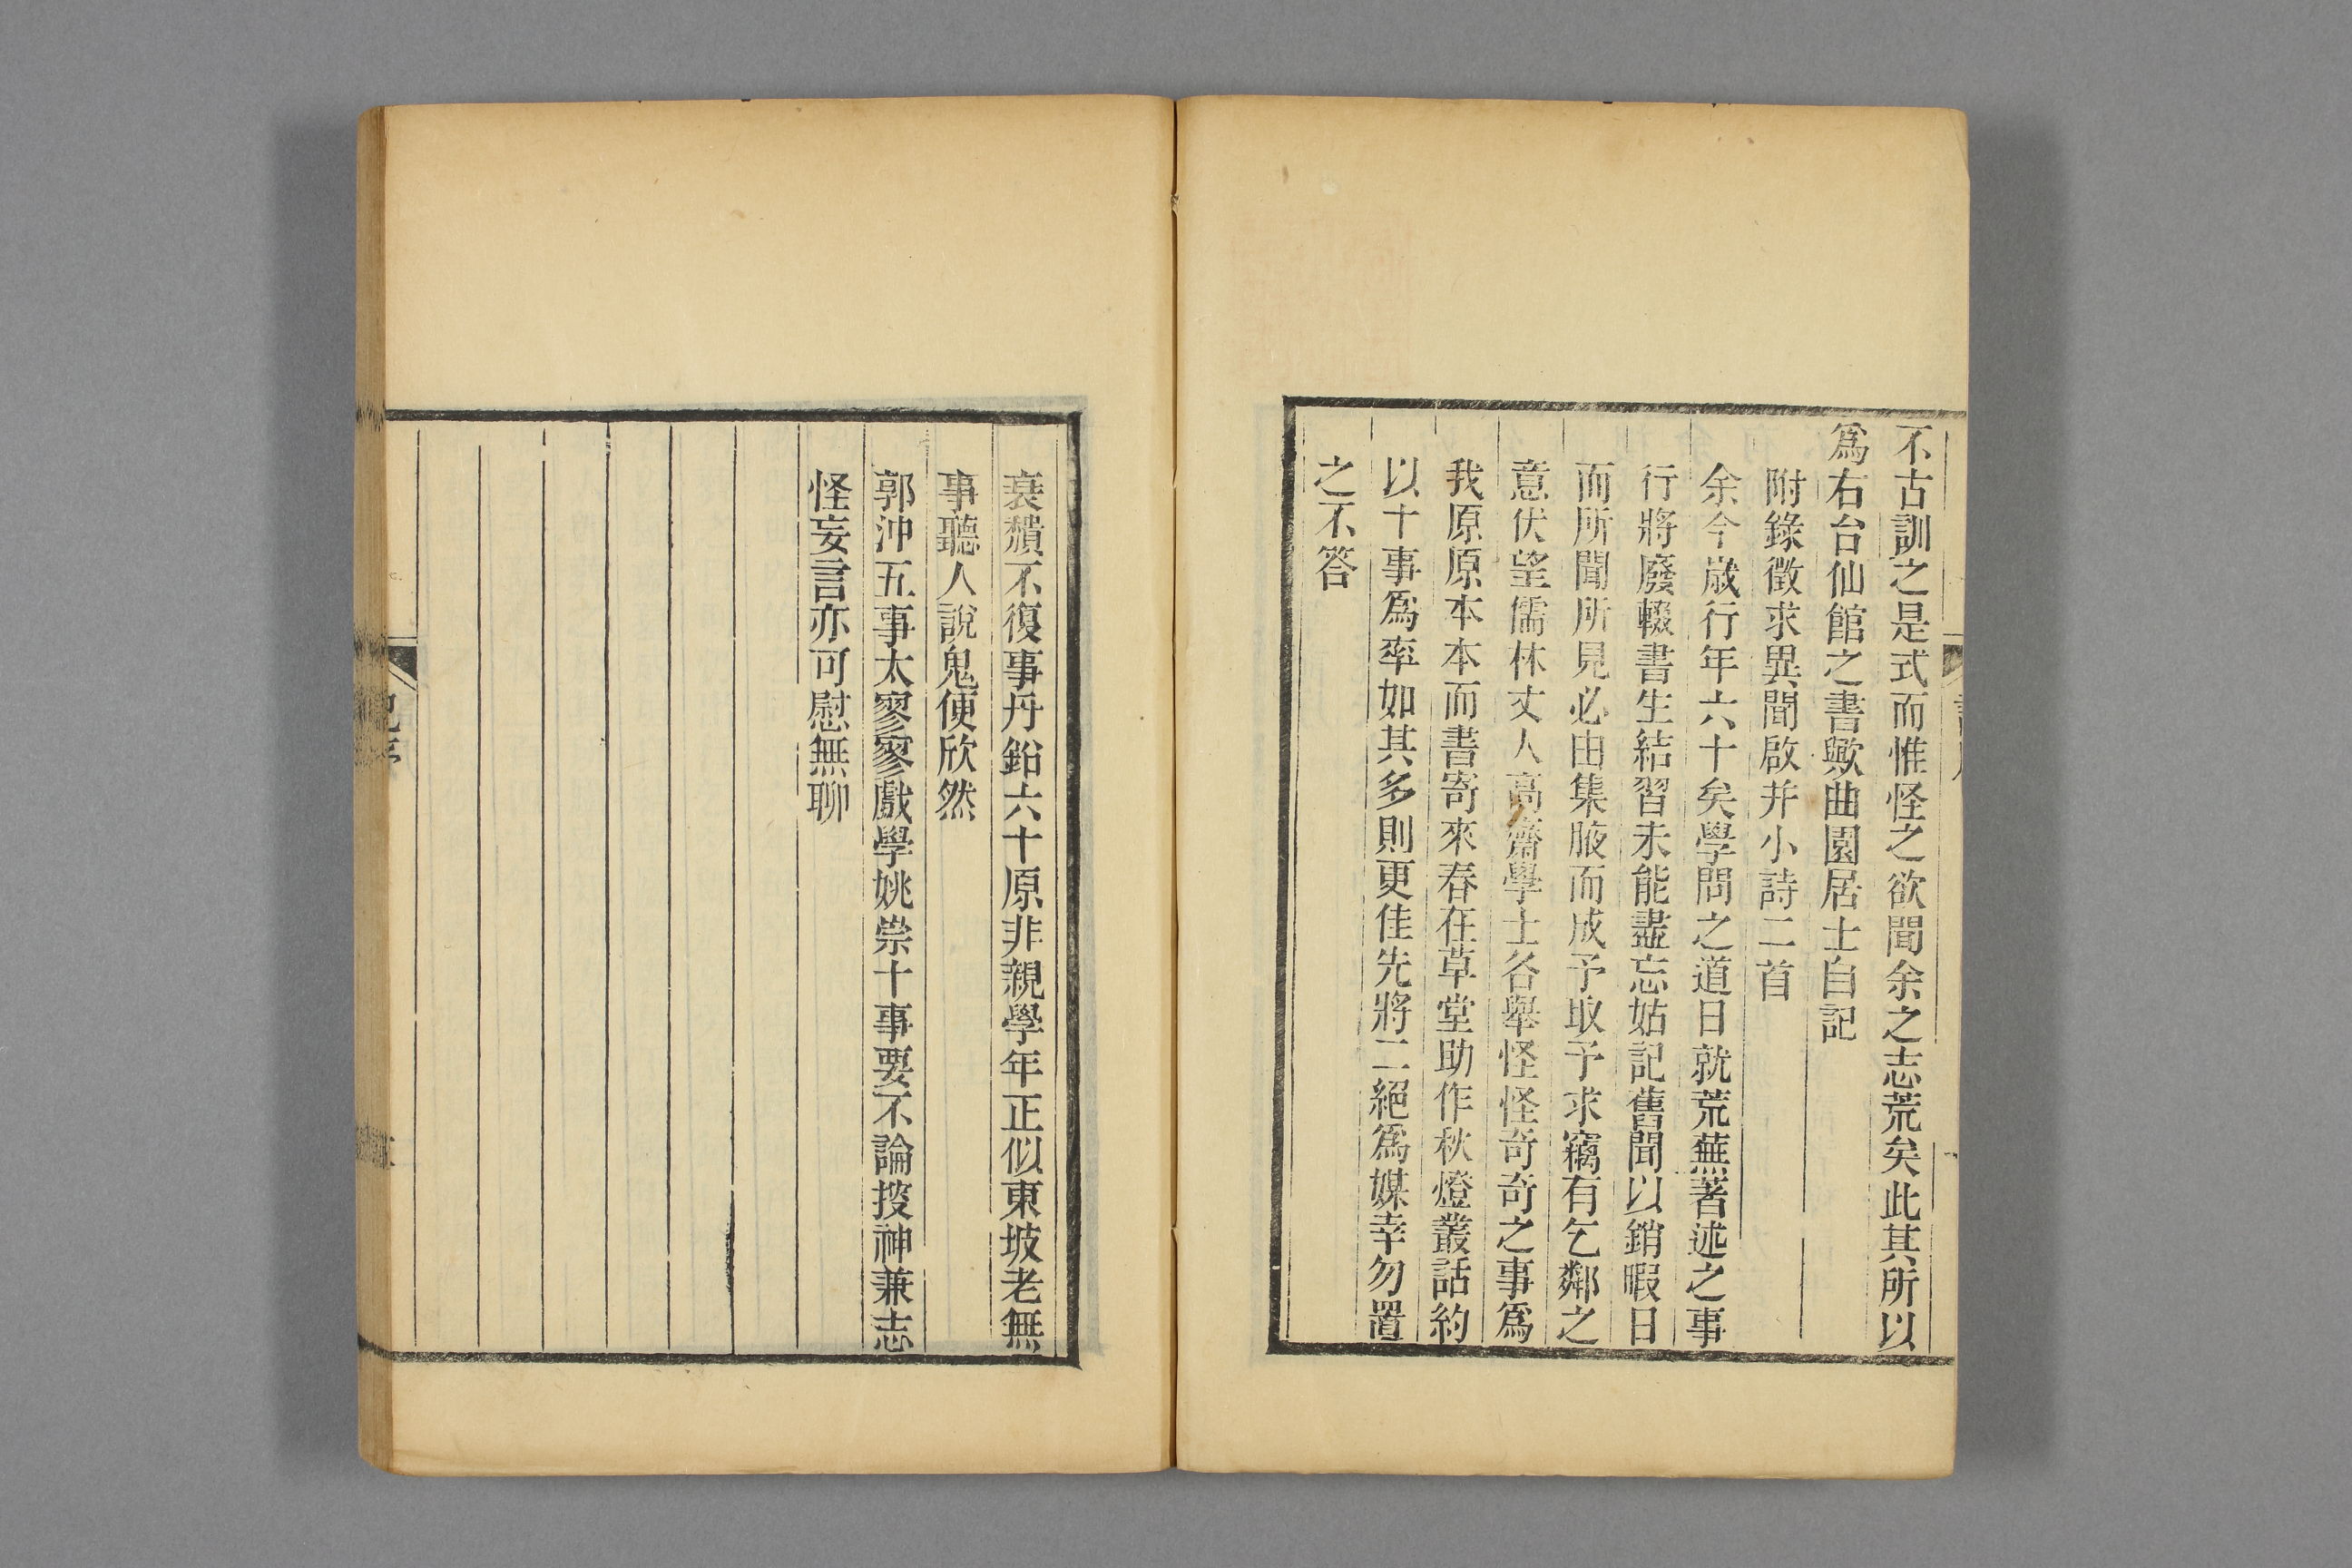 不古訓之是式而惟怪之欲聞余之志荒矣此其所以
爲右台仙館之書歟曲園居士自記
附錄徵求異聞啟并小詩二首
余今歲行年六十矣學問之道日就荒蕪著述之事
行將廢輟書生結習未能盡忘姑記舊聞以銷暇日
而所聞所見必由集腋而成予取予求竊有乞鄰之
意伏望儒林丈人高齋學士各舉怪怪奇奇之事爲
我原原本本而書寄來春在草堂助作秋燈叢話約
以十事爲率如其多則更佳先將二絕爲媒幸勿置
之不答
衰穨不復事丹鉛六十原非親學年正似東坡老無
事聽人說鬼便欣然
郭沖五事太寥寥戲學姚崇十事要不論搜神兼志
怪妄言亦可慰無聊